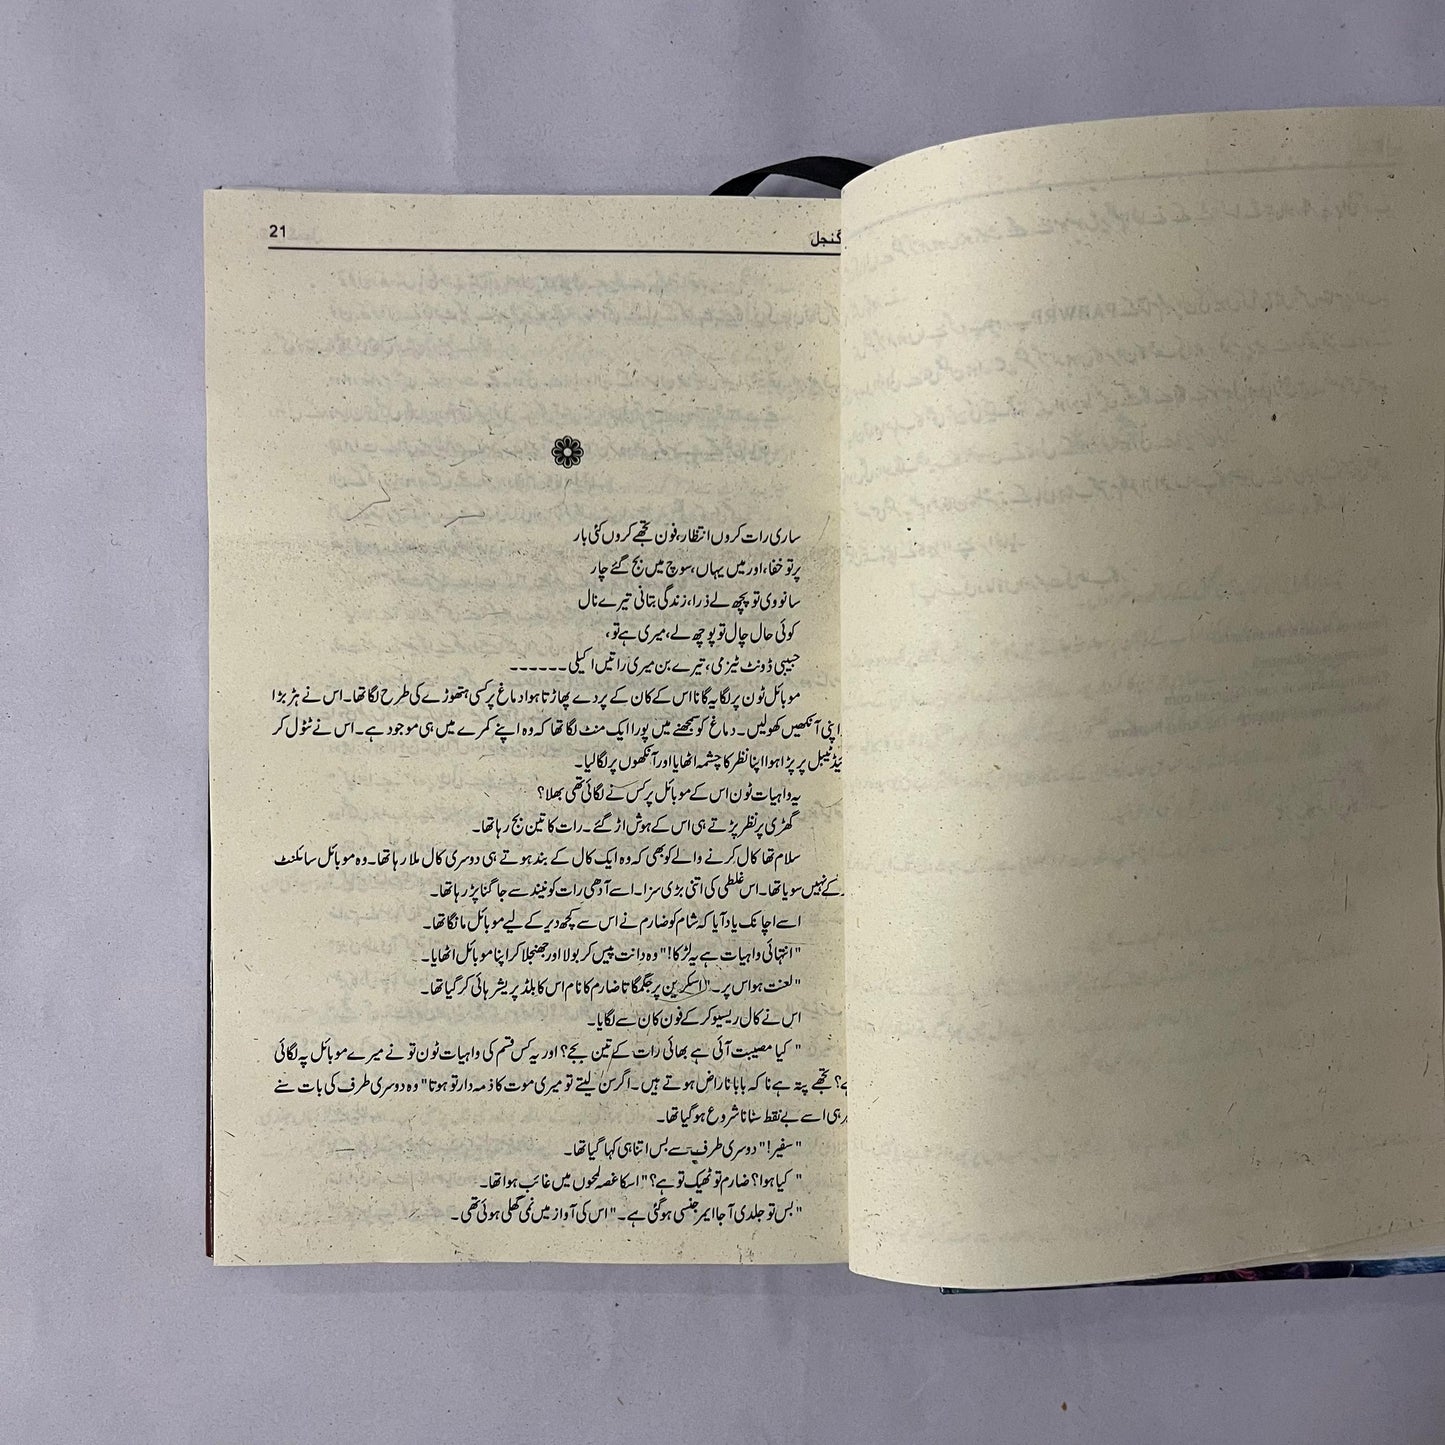 21
گنجل
ساری رات کروں انتظار، فون تجھے کروں کئی بار
پر تو خفا، اور میں یہاں، سوچ میں بج گئے چار
سانو وی تو پچھ لے ذرا، زندگی بتانی تیرے نال
کوئی حال چال تو پوچھ لے، میری ہے تو،
حبیبی ڈونٹ ٹیز می، تیرے بن میری راتیں اکیلی ۔۔۔۔۔۔
موبائل ٹون پر لگا یہ گانا اس کے کان کے پردے پھاڑتا ہوا دماغ پر کسی ہتھوڑے کی طرح لگا تھا۔ اس نے ہڑبڑا
اپنی آنکھیں کھولیں۔ دماغ کو سمجھنے میں پورا ایک منٹ لگا تھا کہ وہ اپنے کمرے میں ہی موجود ہے۔ اس نے ٹٹول کر
ٹیبل پر پڑا ہوا اپنا نظر کا چشمہ اٹھایا اور آنکھوں پر لگا لیا۔
یہ واہیات ٹون اس کے موبائل پر کس نے لگائی تھی بھلا؟
گھڑی پر نظر پڑتے ہی اس کے ہوش اڑ گئے۔ رات کا تین بج رہا تھا۔
سلام تھا کال کرنے والے کو بھی کہ وہ ایک کال کے بند ہوتے ہی دوسری کال ملا رہا تھا۔ وہ موبائل سائلنٹ
کے نہیں سویا تھا۔ اس غلطی کی اتنی بڑی سزا۔ اسے آدھی رات کو نیند سے جاگنا پڑ رہا تھا۔
اسے اچانک یاد آیا کہ شام کو ضارم نے اس سے کچھ دیر کے لیے موبائل مانگا تھا۔
"انتہائی واہیات ہے یہ لڑکا!" وہ دانت پیس کر بولا اور جھنجلا کر اپنا موبائل اٹھایا۔
"لعنت ہو اس پر۔" اسکرین پر جگمگاتا ضارم کا نام اس کا بلڈ پریشر ہائی کر گیا تھا۔
اس نے کال ریسیو کر کے فون کان سے لگایا۔
"کیا مصیبت آئی ہے بھائی رات کے تین بجے؟ اور یہ کس قسم کی واہیات ٹون تو نے میرے موبائل پہ لگائی
ہے؟ تجھے پتہ ہے نا کہ بابا ناراض ہوتے ہیں۔ اگر سن لیتے تو میری موت کا ذمہ دار تو ہوتا" وہ دوسری طرف کی بات سنے
ہی اسے بے نقط سنانا شروع ہو گیا تھا۔
"سفیر!" دوسری طرف سے بس اتنا ہی کہا گیا تھا۔
"کیا ہوا؟ ضارم تو ٹھیک تو ہے؟" اسکا غصہ لمحوں میں غائب ہوا تھا۔
"بس تو جلدی آ جا ایمرجنسی ہو گئی ہے۔" اس کی آواز میں نمی گھلی ہوئی تھی۔